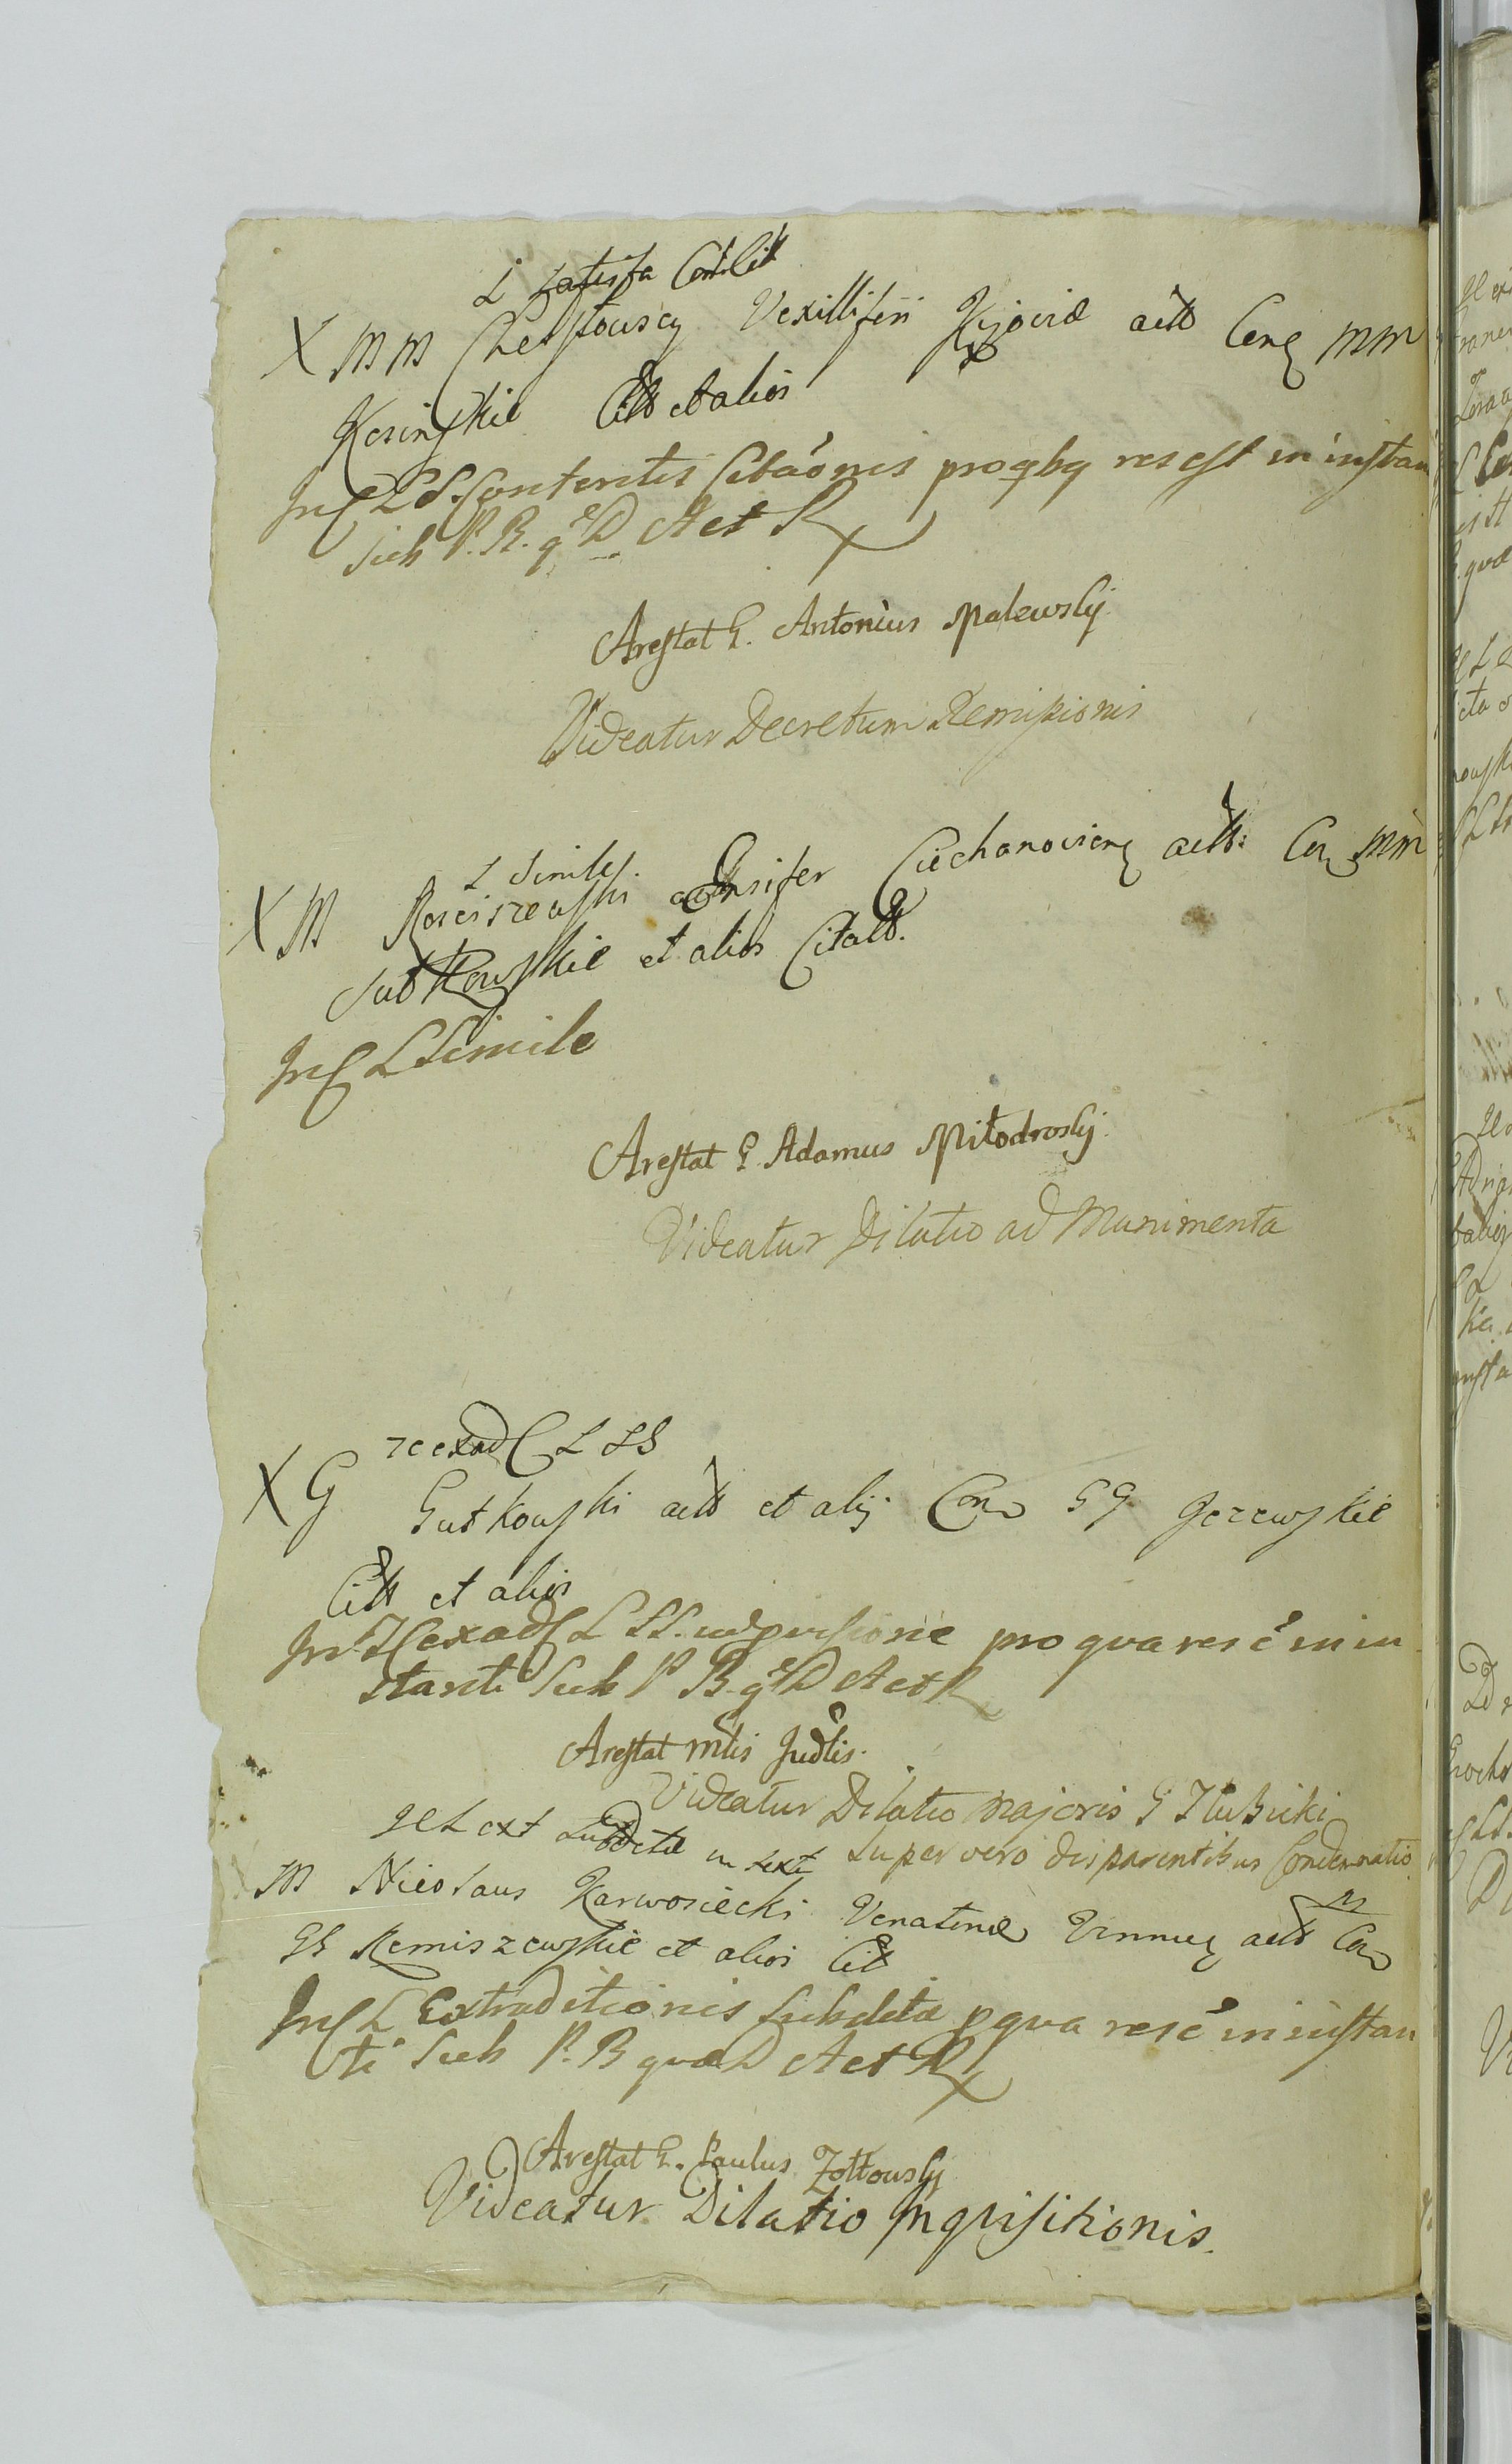 L Satisfa Cond
X MM Chelstowscy Vexilliferi Kijoviæ actt Con MM
Kosinskie Citt et alios
In C L S. Contentis Citaónis pro qbq res est in instan
sub P. R. q D A et R
Arestat G. Antonius Malewsky
Videatur Decretum Remissionis
L Simile
X M Rosciszewski Ensifer Ciechanovien actt Con MM
Sutkowskie et alios Citatt.
In C L Simile
Arestat G. Adamus Milodrosky
Videatur Dilatio ad Munimenta
re ex ad C L SS
X G Gutkowski actt et alij Con GG Jezewskie
Citt et alios
In re ex ad C L SS. pro qva res é in in
stanti sub P B q D A et R
Arestat Mtis Judlis.
Videatur Dilatio Majoris G Hlubicki
Super vero disparentibus Condemnatio
re L ext Subdetæ in text
M Nicolaus Karwosiecki Venatoridæ actt Con
GG Remiszewskie et alios Citt
In C L Extraditionis Subdetæ p qva res é in instan
ti sub P. B quæ D A et R
Arestat G. Paulus Zoltowsky
Videatur Dilatio Inqvisitionis.